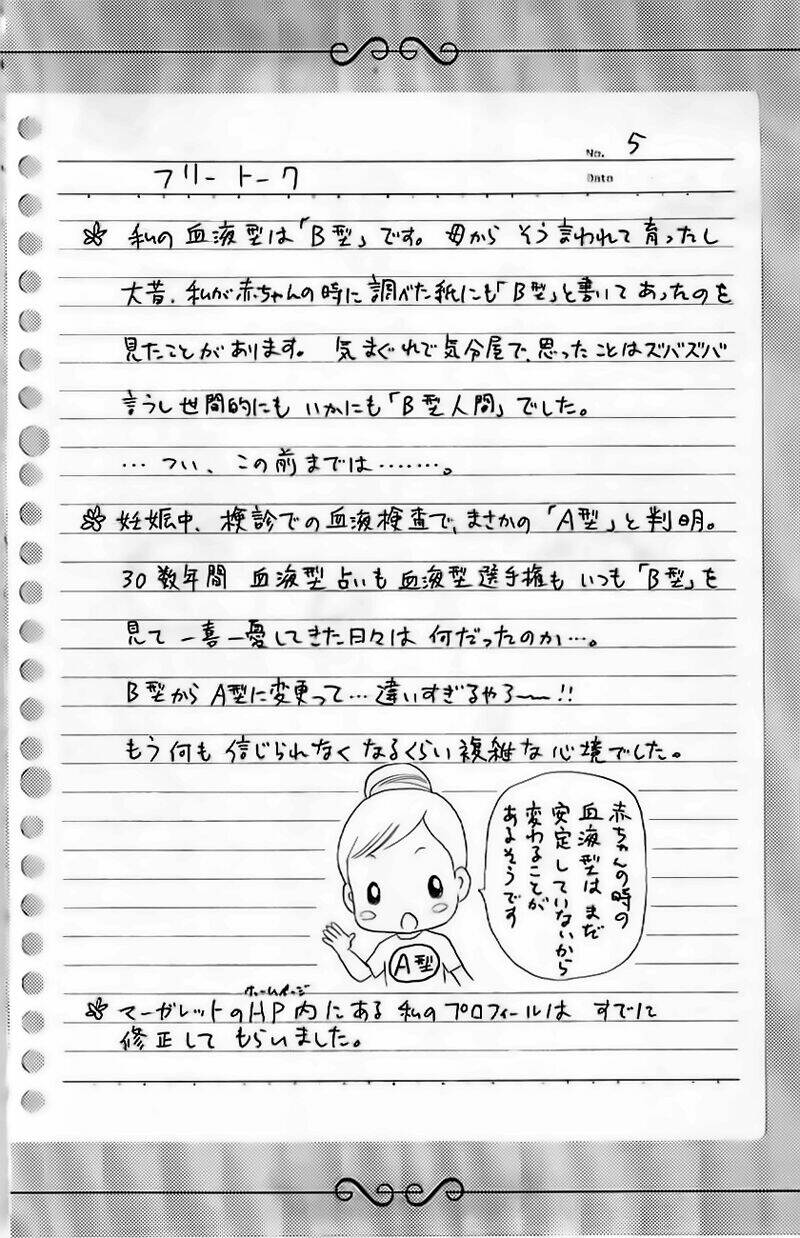 No. 5
フリートーク
Date
私の血液型は「B型」です。母から そう言われて育ったし
大昔、私が赤ちゃんの時に調べた紙にも「B型」と書いてあったのを
見たことがあります。 気まぐれで気分屋で、思ったことはズバズバ
言うし世間的にも いかにも「B型人間」でした。
… つい、この前までは………。
妊娠中、検診での血液検査で、まさかの「A型」と判明。
30数年間 血液型占いも血液型選手権も いつも「B型」を
見て 一喜一憂してきた日々は 何だったのか…。
B型から A型に変更って…違いすぎるやろ〜!!
もう何も 信じられなく なるくらい複雑な心境でした。
赤ちゃんの時の
血液型は まだ
安定していないから
変わることが
あるそうです
A型
ホームページ
マーガレットのHP内にある 私の プロフィールは すでに
修正して もらいました。